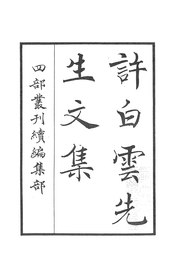 許白雲先
生文集
四部叢刊續編集部